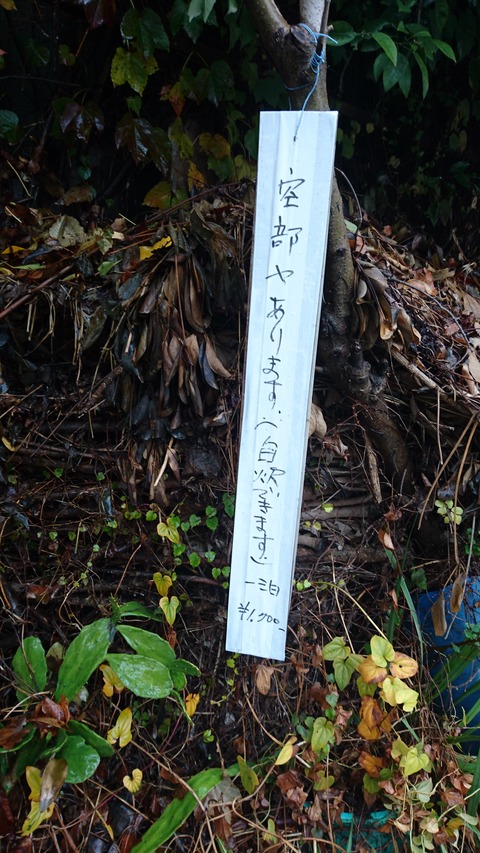 空部ヤあります。(自炊できます)
一泊
¥1,700-